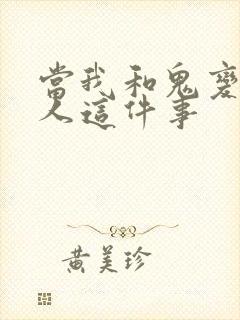 當我和鬼變
人這件事
黃美珍